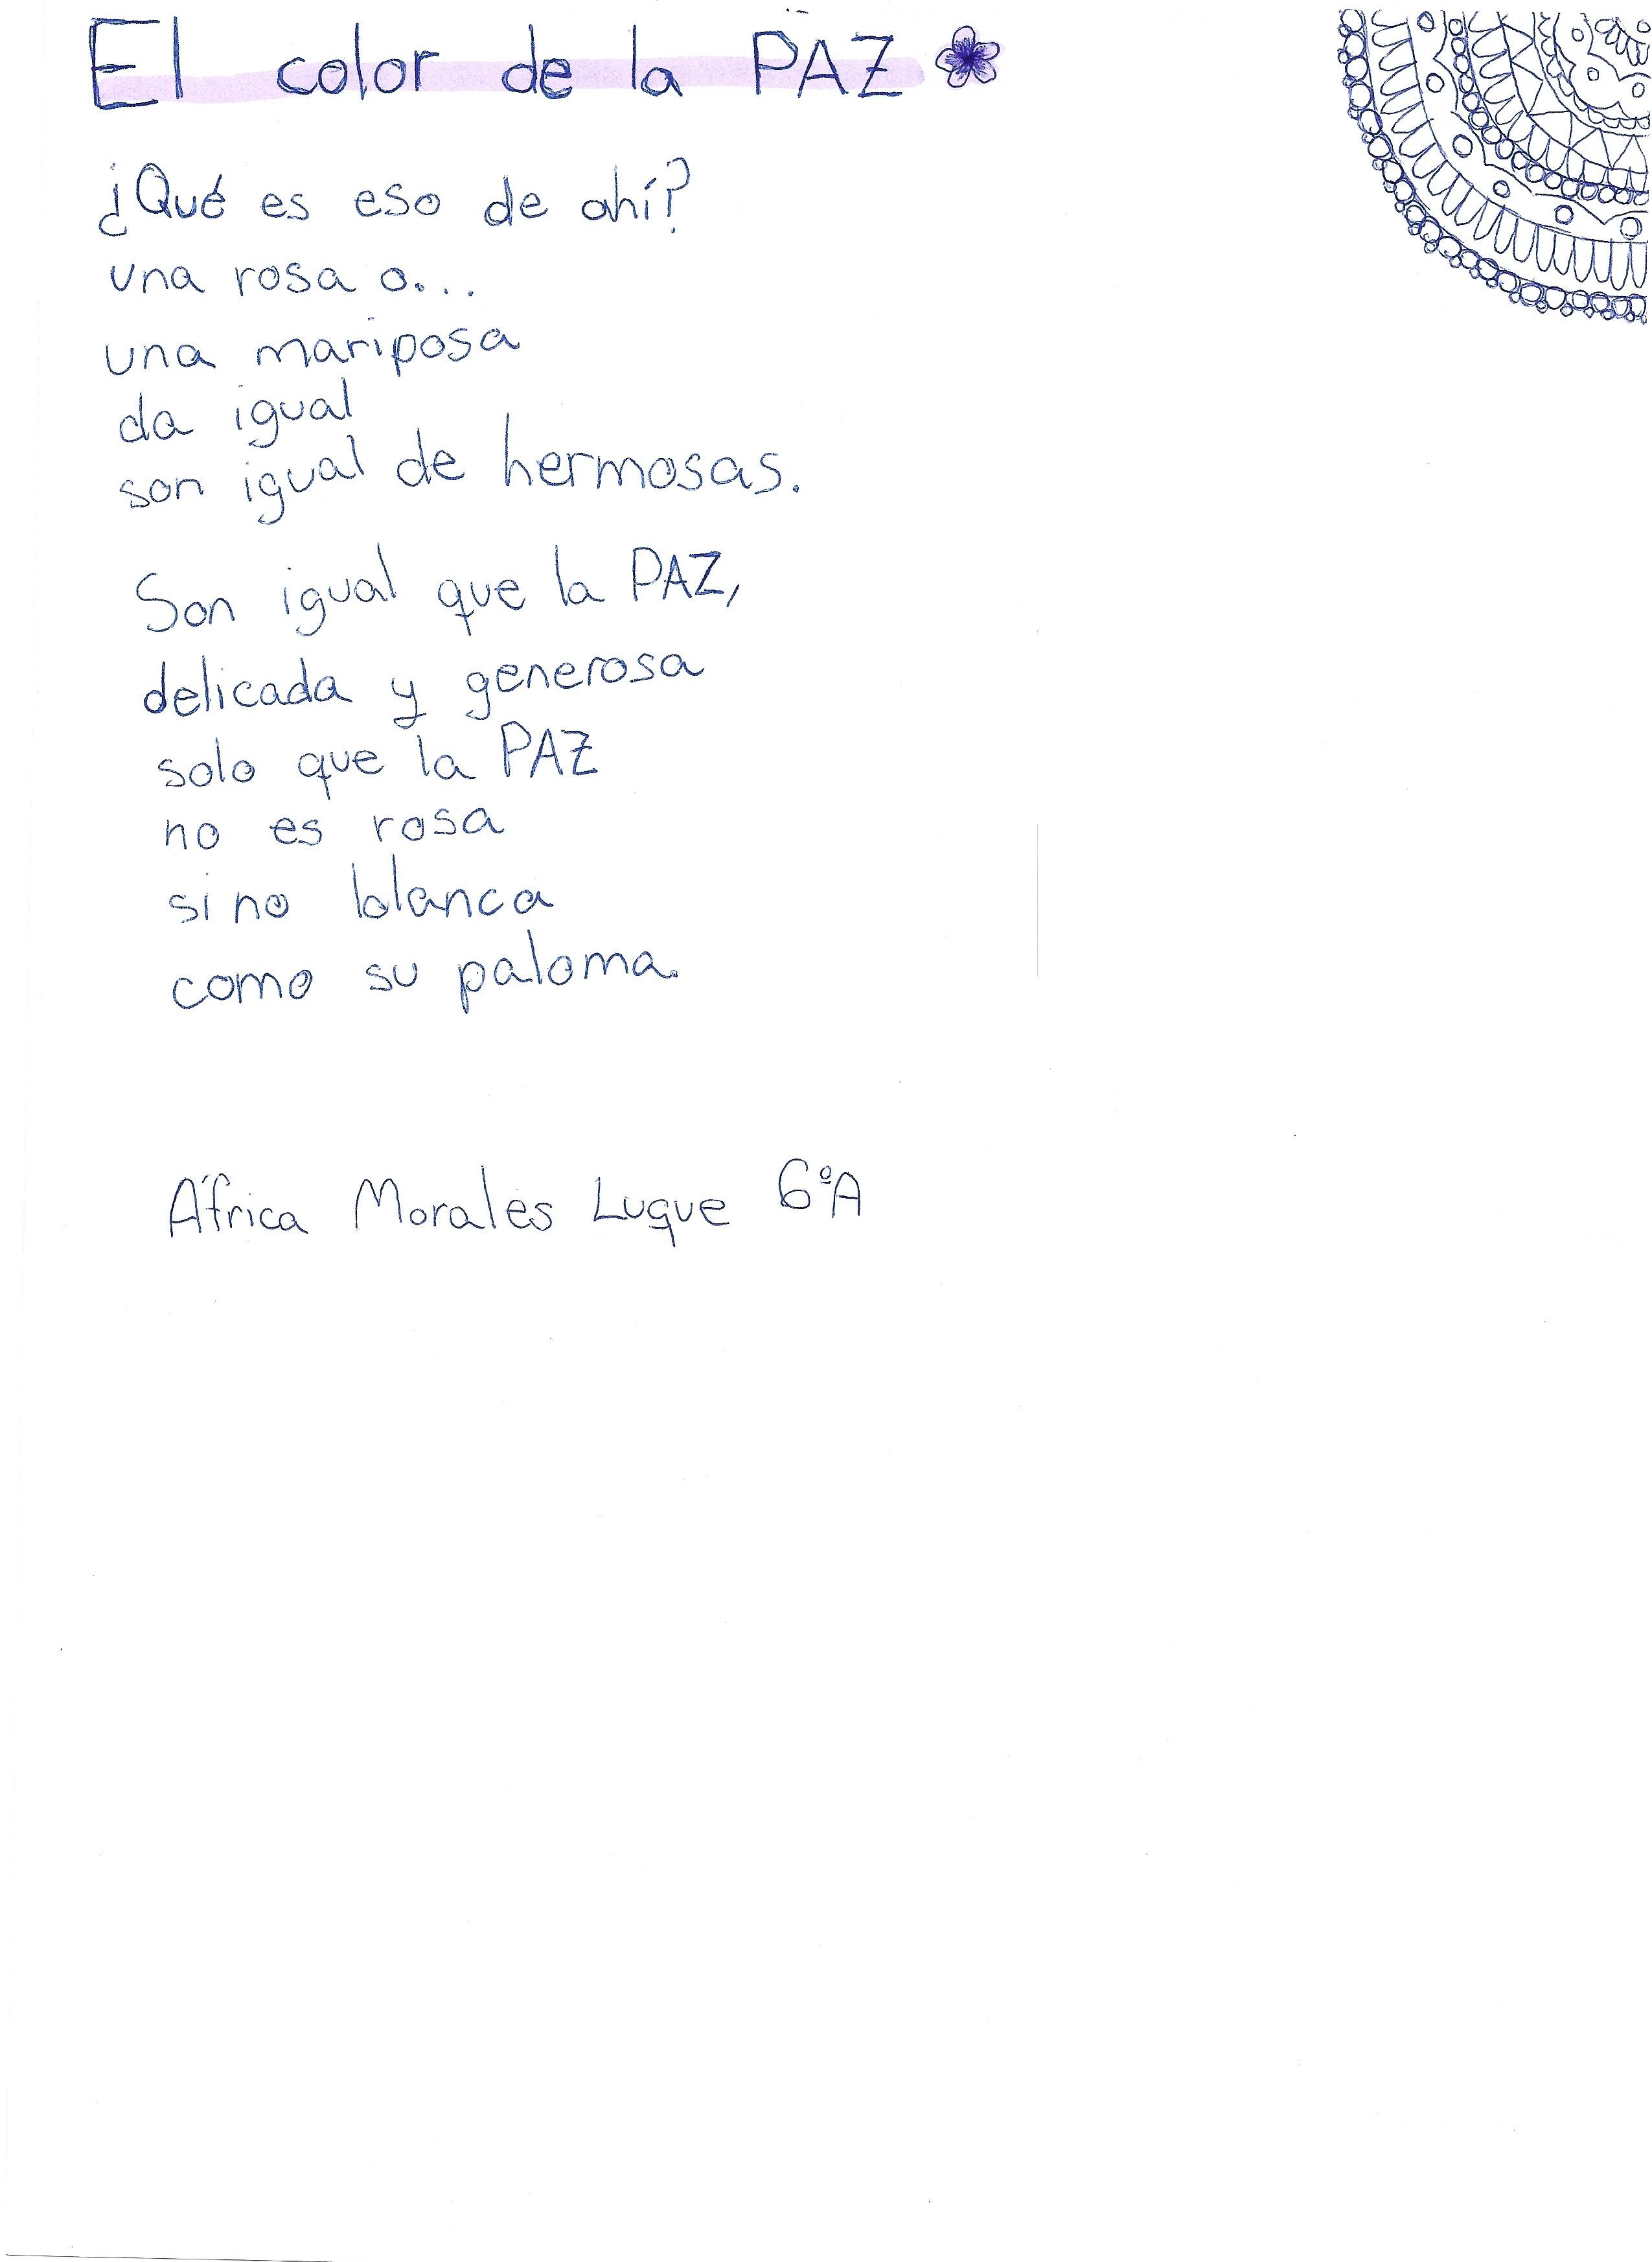 El color de la PAZ
¿Qué es eso de ahí?
una rosa o...
una mariposa
da igual
son igual de hermosas.
Son igual que la PAZ,
delicada y generosa
solo que la PAZ
no es rosa
sino blanca
como su paloma.
África Morales Luque 6ºA